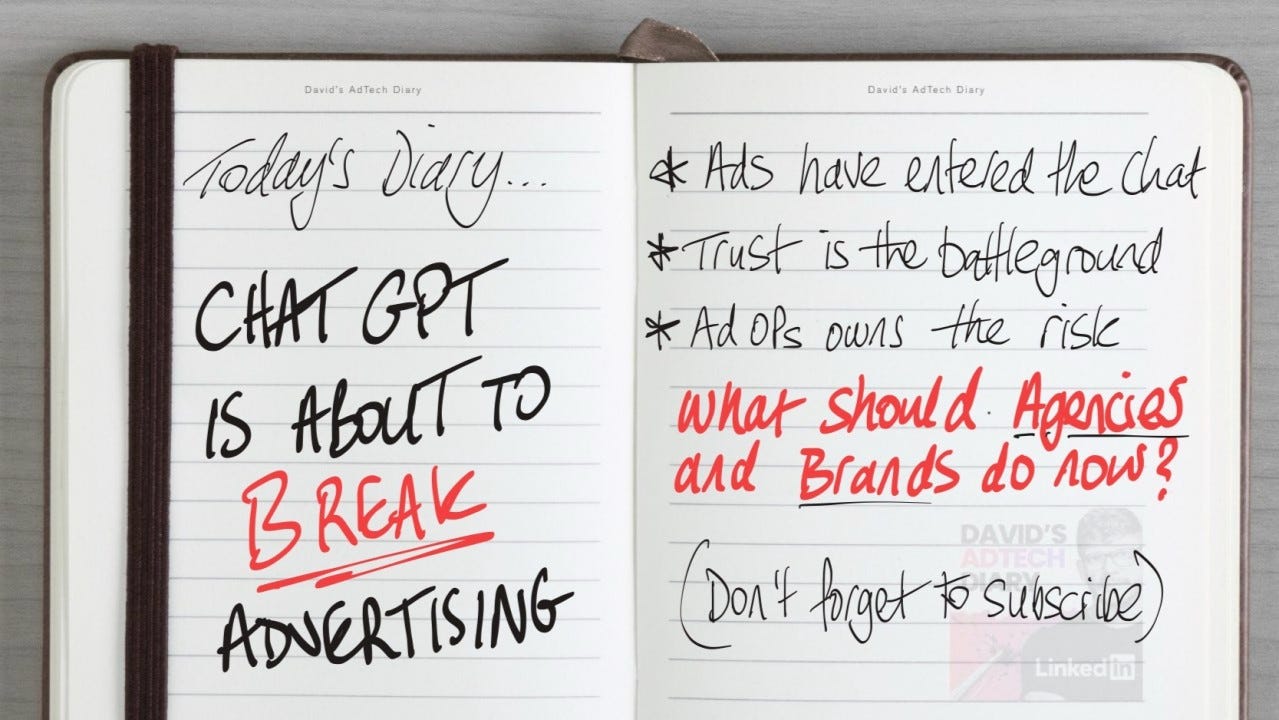 David's AdTech Diary
Today's Diary...
CHAT GPT
IS ABOUT TO
BREAK
ADVERTISING
David's AdTech Diary
* Ads have entered the chat
* Trust is the battleground
* Ad OPs owns the risk
What should Agencies
and Brands do now?
DAVID'S
ADTECH
DIARY
(Don't forget to subscribe)
Linked in